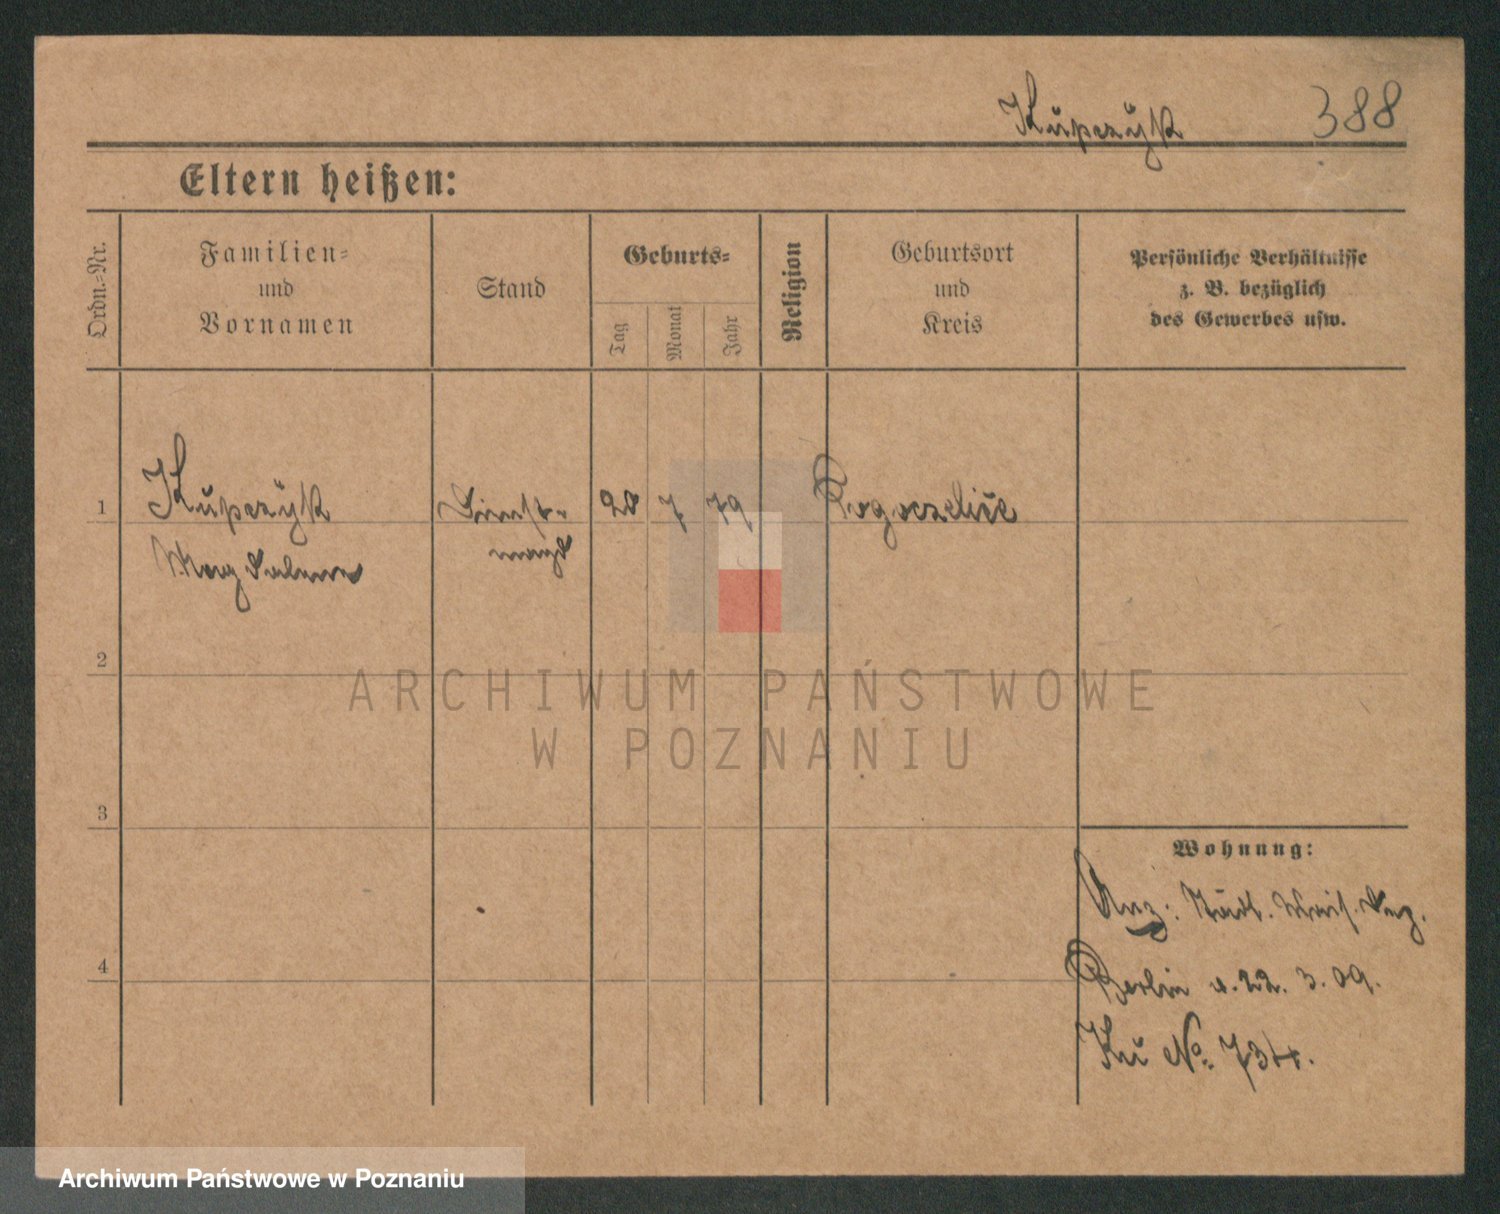 Kupczyk 388
Eltern heißen:
Ordn.=Nr.
Familien=
und
Vornamen
Stand
Geburts=
Tag
Monat
Jahr
Religion
Geburtsort
und
Kreis
Persönliche Verhältnisse
z. B. bezüglich
des Gewerbes usw.
1 Kupczyk Dienst- 28 7 79
Magdalena magd
2
3
4
Wohnung:
Anz: Städt. Wais.
Berlin v. 22. 3. 09.
Ku No. 734.
ARCHIWUM PAŃSTWOWE
W POZNANIU
Archiwum Państwowe w Poznaniu